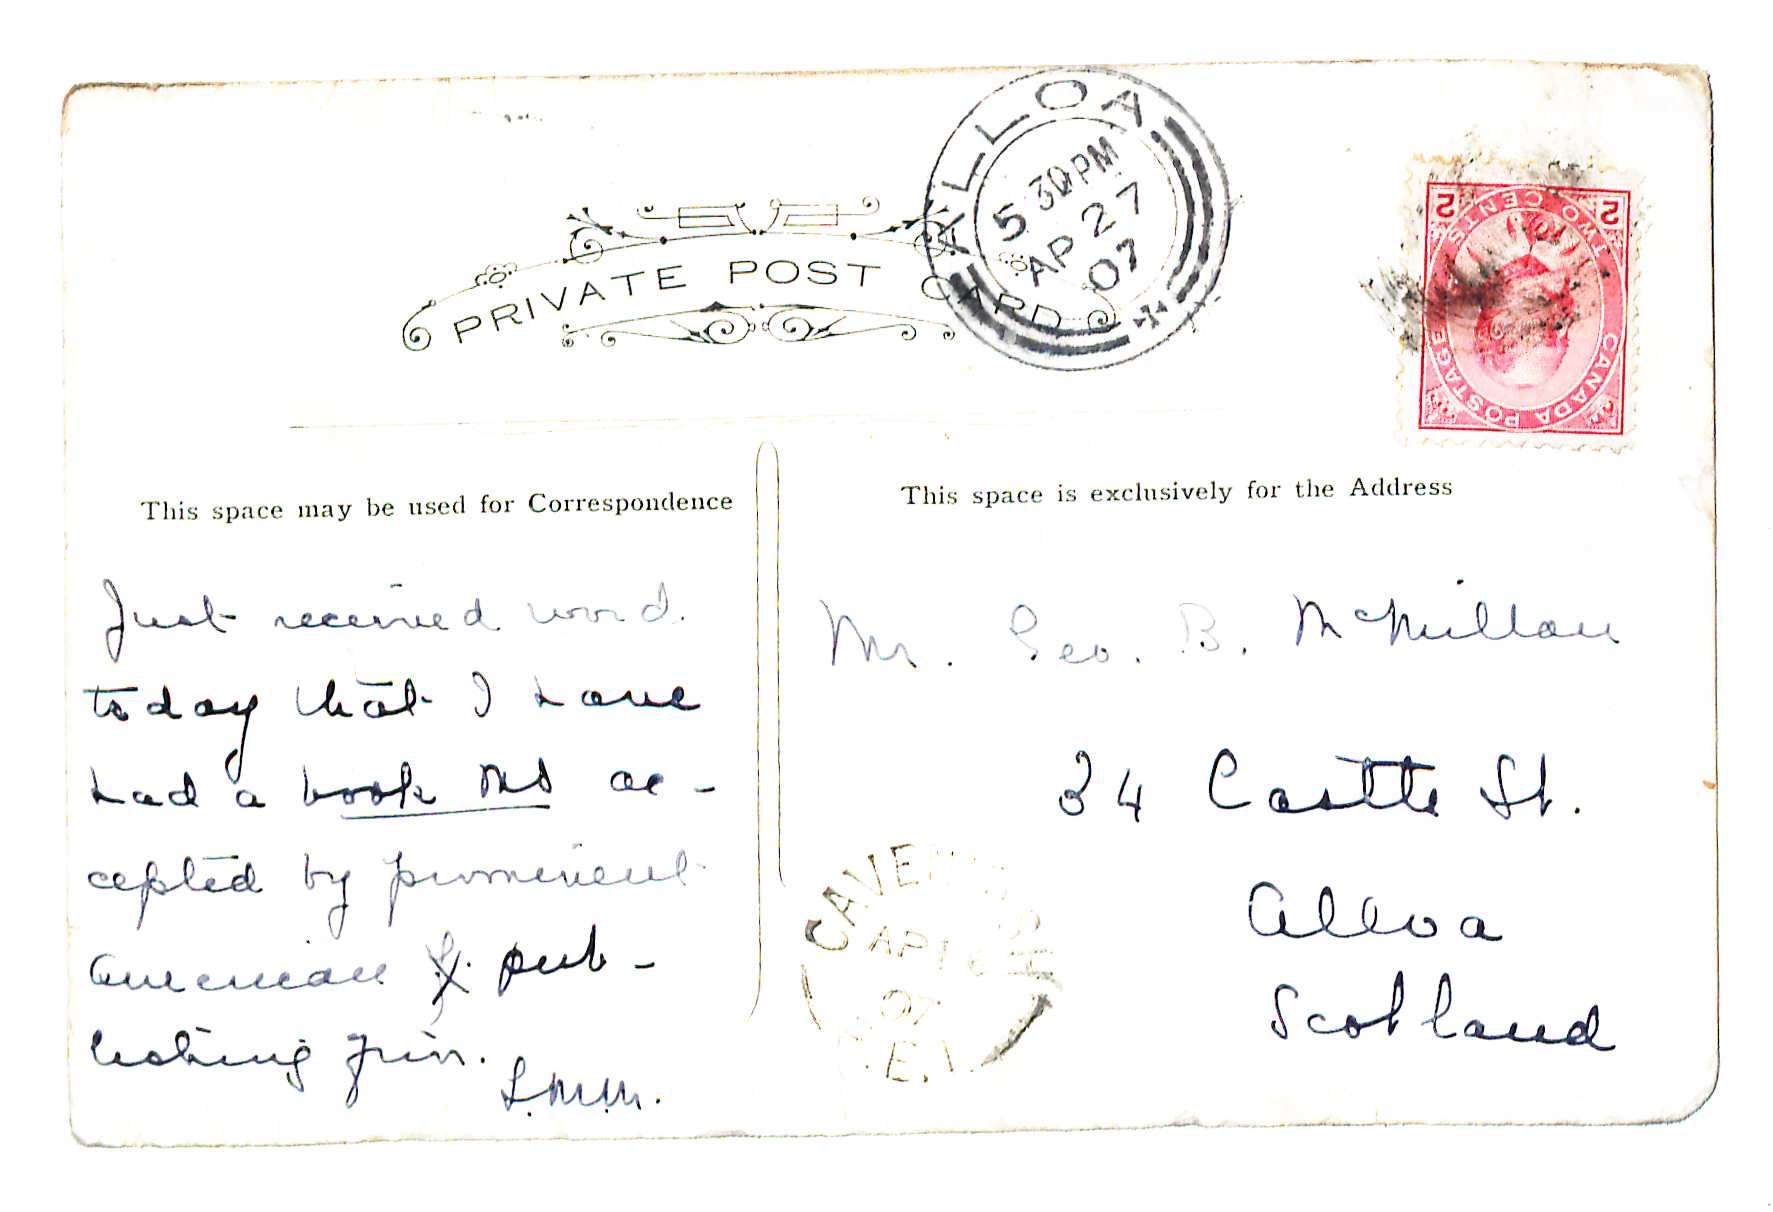 ALLOA
5 30PM
AP 27
07
PRIVATE POST CARD
2 TWO CENTS 2
CANADA POSTAGE
This space may be used for Correspondence
Just received word
today that I have
had a book MS ac-
cepted by prominent
American pub-
lishing firm.
L.M.M.
This space is exclusively for the Address
Mr. Geo. B. McMillan
34 Castle St.
Alloa
Scotland
CAVENDISH
AP 16
07
P.E.I.